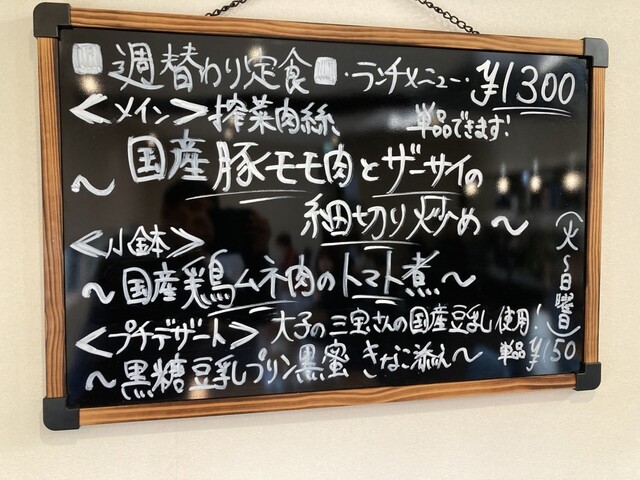 週替わり定食 ・ランチメニュー・ ¥1300
<メイン> 搾菜肉絲 単品できます!
〜国産豚モモ肉とザーサイの
細切り炒め〜
<小鉢>
〜国産鶏ムネ肉のトマト煮〜
(火〜日曜日)
<プチデザート> 大子の三宝さんの国産豆乳使用!
〜黒糖豆乳プリン黒蜜きなこ添え〜 単品¥150